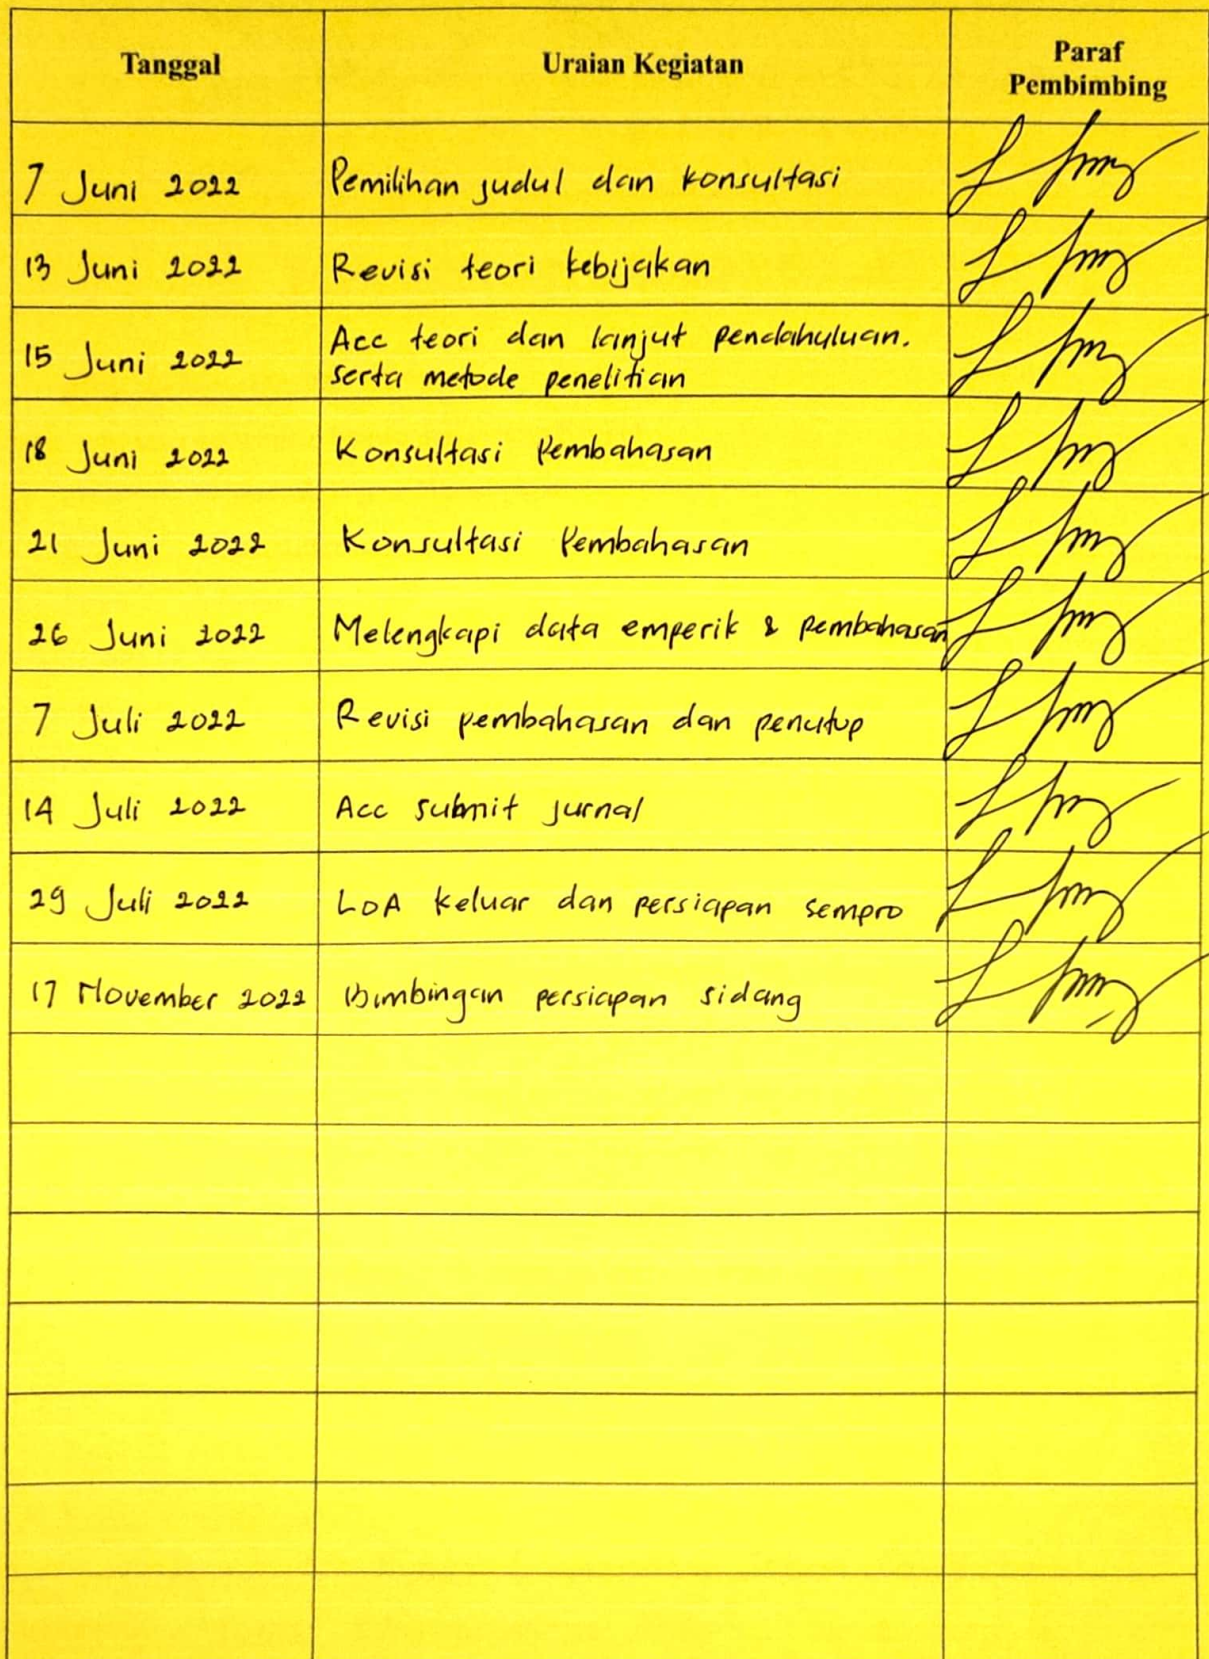 Tanggal
Uraian Kegiatan
Paraf
Pembimbing
7 Juni 2022
Pemilihan judul dan konsultasi
13 Juni 2022
Revisi teori kebijakan
15 Juni 2022
Acc teori dan lanjut pendahuluan.
serta metode penelitian
18 Juni 2022
Konsultasi Pembahasan
21 Juni 2022
Konsultasi Pembahasan
26 Juni 2022
Melengkapi data emperik & pembahasan
7 Juli 2022
Revisi pembahasan dan penutup
14 Juli 2022
Acc submit jurnal
29 Juli 2022
LOA keluar dan persiapan sempro
17 November 2022
Bimbingan persiapan sidang